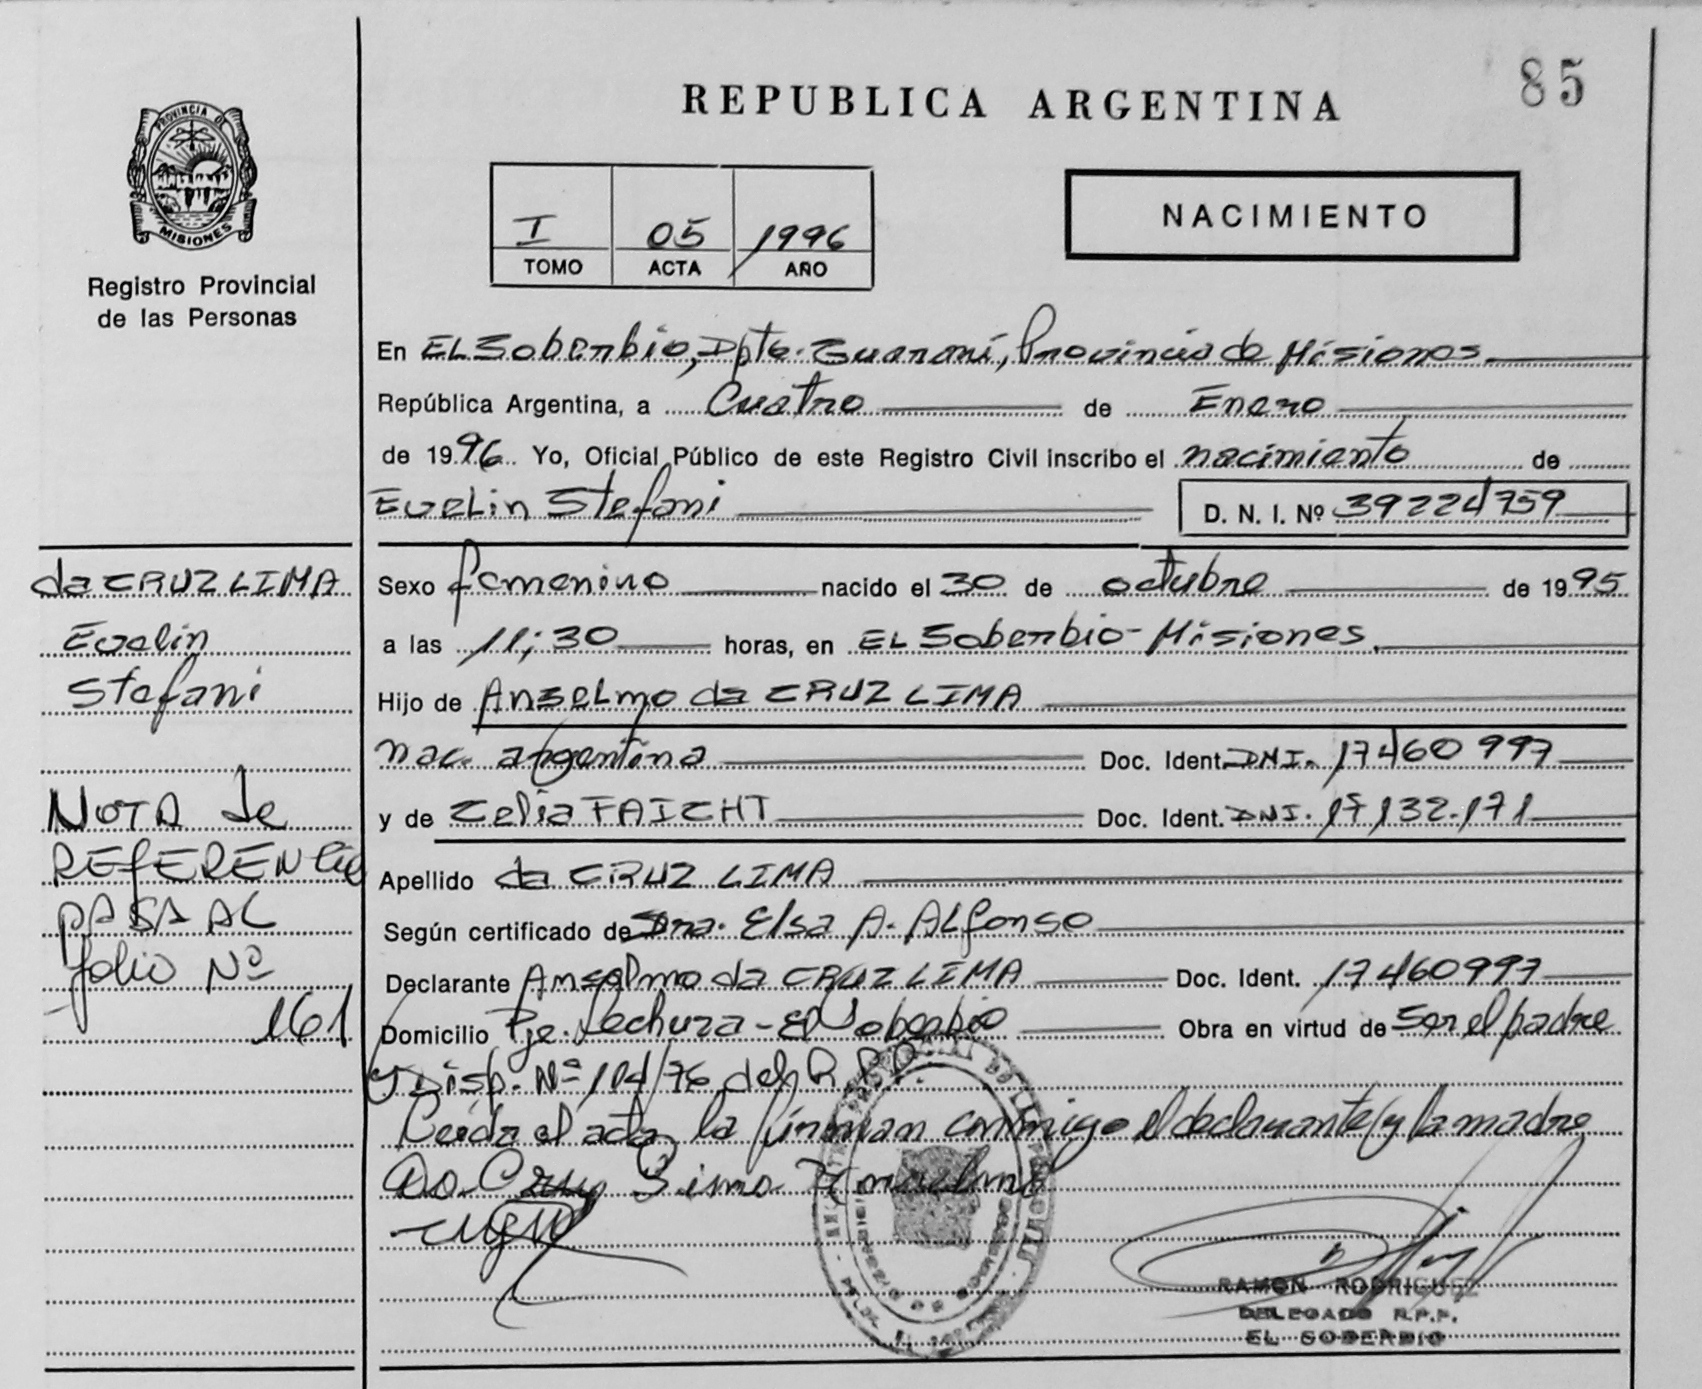 85
REPUBLICA ARGENTINA
PROVINCIA DE
MISIONES
Registro Provincial
de las Personas
I 05 1996
TOMO ACTA AÑO
NACIMIENTO
En EL Soberbio, Dpto. Guaraní, Provincia de Misiones.
República Argentina, a Cuatro de Enero
de 1996 Yo, Oficial Público de este Registro Civil inscribo el nacimiento de
Evelin Stefani D. N. I. Nº 39224759
da CRUZ LIMA
Evelin
Stefani
NOTA de
REFERENCIA
PASA AL
folio Nº
161
Sexo femenino nacido el 30 de octubre de 1995
a las 11;30 horas, en EL Soberbio- Misiones.
Hijo de Anselmo da CRUZ LIMA
nac. argentina Doc. Ident. DNI. 17460997
y de Celia FAICHT Doc. Ident. DNI. 17.132.171
Apellido da CRUZ LIMA
Según certificado de Dra. Elsa A. ALfonso
Declarante Anselmo da CRUZ LIMA Doc. Ident. 17460997
Domicilio Pje. Lechuza - El Soberbio Obra en virtud de ser el padre
y Disp. Nº 104/76 del R.P.P.
Leída el acta, la firman conmigo el declarante y la madre
Da Cruz Lima
RAMON RODRIGUEZ
DELEGADO R.P.P.
EL SOBERBIO